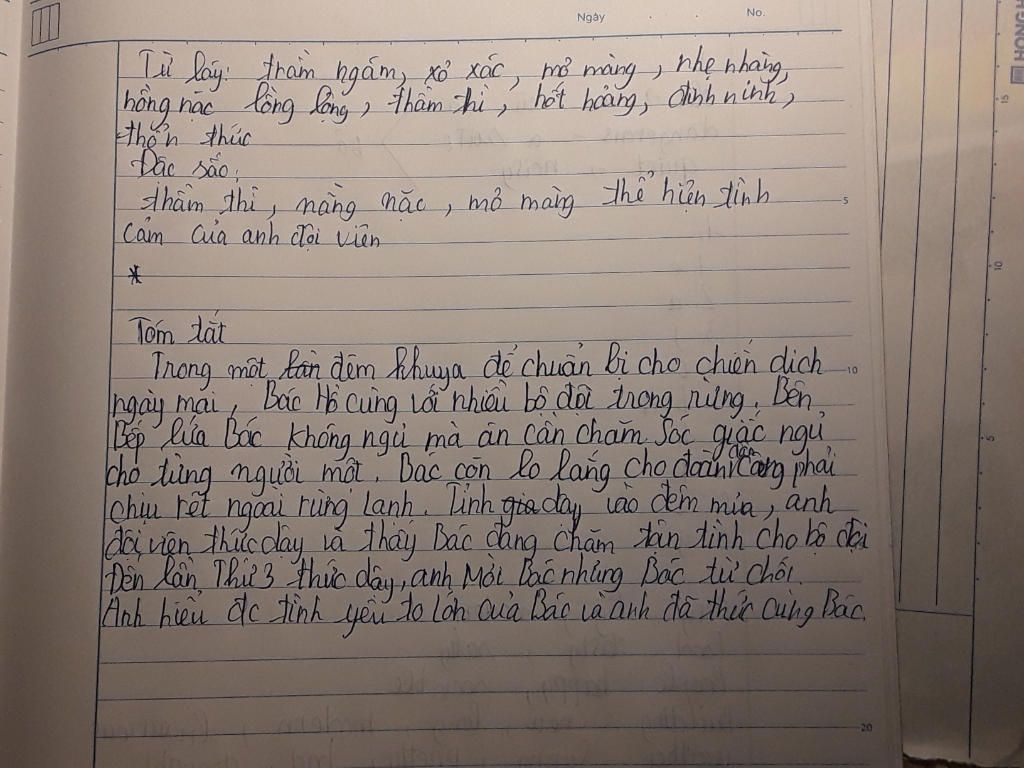 Ngày No.
HONGH
Từ láy: trầm ngâm, xơ xác, mơ màng, nhẹ nhàng,
hồng nặc lồng lộng, thầm thì, hốt hoảng, đinh ninh,
thổn thức
Đặc sắc:
thầm thì, nằng nặc, mơ màng thể hiện tình
5
cảm của anh đội viên
*
Tóm tắt
Trong một đêm khuya để chuẩn bị cho chiến dịch
10
ngày mai, Bác Hồ cùng với nhiều bộ đội trong rừng. Bên
Bếp lửa Bác không ngủ mà ân cần chăm sóc giấc ngủ
cho từng người một. Bác còn lo lắng cho đoàn dân công phải
chịu rét ngoài rừng lạnh. Tỉnh dậy vào đêm mưa, anh
đội viên thức dậy và thấy Bác đang chăm tận tình cho bộ đội
Đến lần Thứ 3 thức dậy, anh Mời Bác nhưng Bác từ chối.
Anh hiểu đc tình yêu to lớn của Bác và anh đã thức cùng Bác.
20
15
10
5